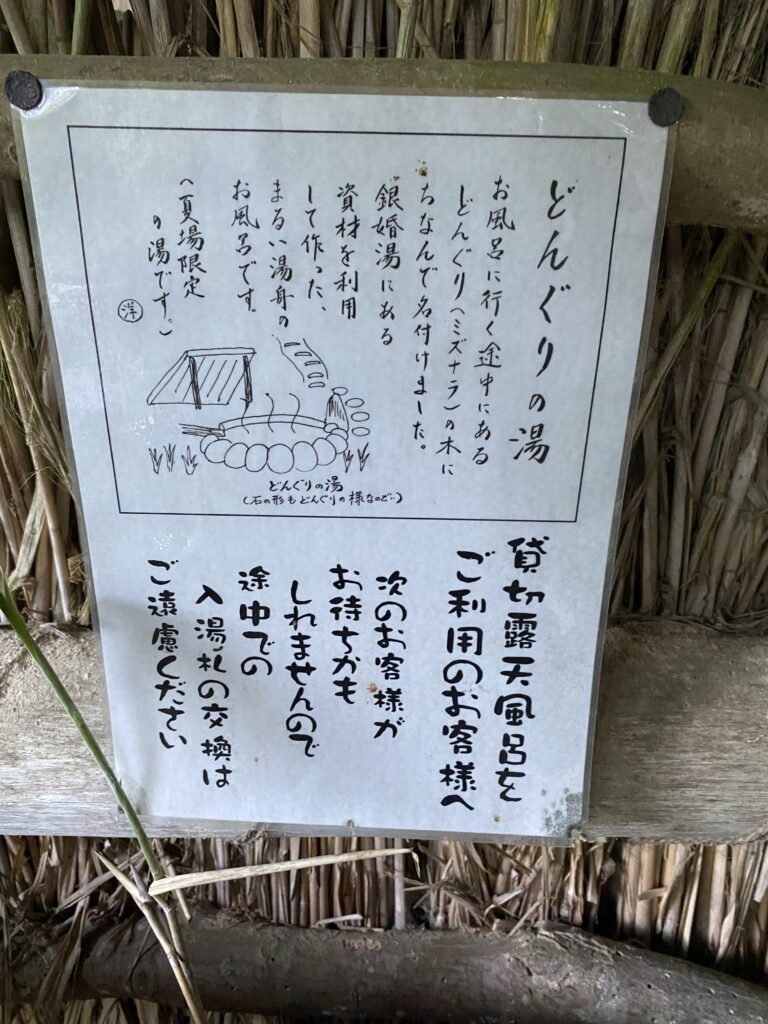 どんぐりの湯
お風呂に行く途中にある
どんぐり(ミズナラ)の木に
ちなんで名付けました。
銀婚湯にある
資材を利用
して作った、
まるい湯舟の
お風呂です。
(夏場限定
の湯です。)
洋
どんぐりの湯
(石の形もどんぐりの様なのだ…)
貸切露天風呂を
ご利用のお客様へ
次のお客様が
お待ちかも
しれませんので
途中での
入湯札の交換は
ご遠慮ください